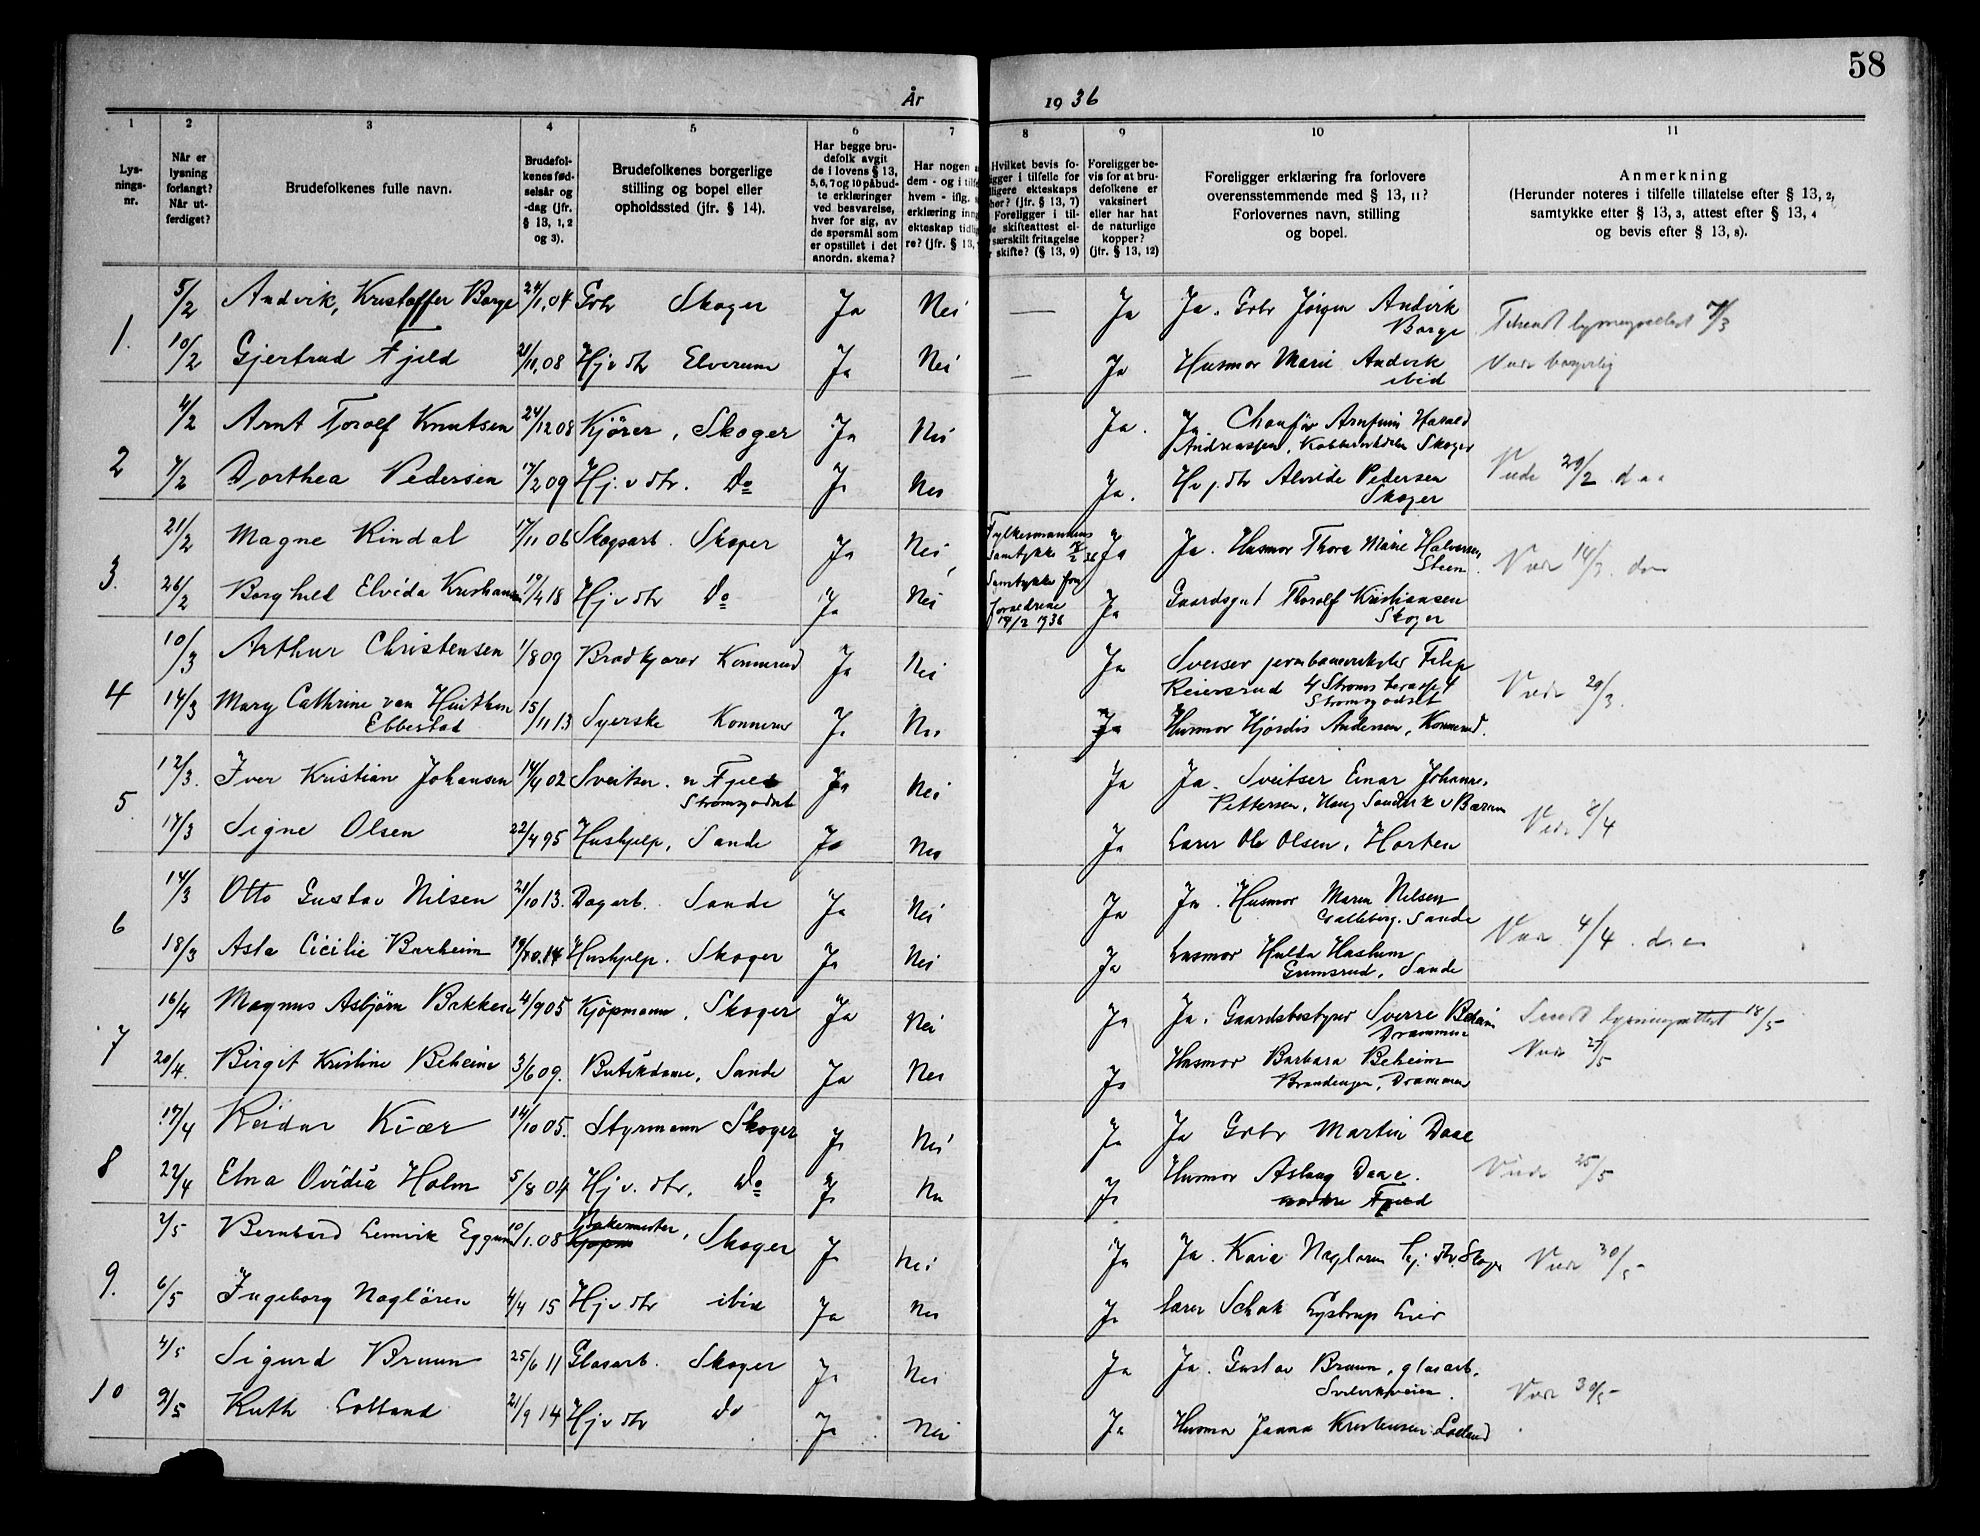 58
År 1936
1 2 3 4 5 6 7 8 9 10 11
Lys-
nings-
nr.
Når er
lysning
forlangt?
Når ut-
ferdiget?
Brudefolkenes fulle navn.
Brudefol-
kenes fød-
selsår og
-dag (jfr.
§ 13, 1, 2
og 3).
Brudefolkenes borgerlige
stilling og bopel eller
opholdssted (jfr. § 14).
Har begge bru-
defolk avgit
de i lovens § 13,
5, 6, 7 og 10 påbud-
te erklæringer
ved besvarelse,
hver for sig, av
de spørsmål som
er opstillet i det
anordn. skema?
Har nogen
dem - og i tilf
hvem - iflg.
erklæring inng
ekteskap tidl
re? (jfr. § 13,
Hvilket bevis fo-
igger i tilfelle for
ligere ekteskaps
hør? (jfr. § 13, 7)
Foreligger i til-
le skifteattest el-
særskilt fritagelse
skifte? (§ 13, 9)
Foreligger be-
vis for at bru-
defolkene er
vaksinert
eller har hat
de naturlige
kopper?
(jfr. § 13, 12)
Foreligger erklæring fra forlovere
overensstemmende med § 13, 11?
Forlovernes navn, stilling
og bopel.
Anmerkning
(Herunder noteres i tilfelle tillatelse efter § 13, 2,
samtykke efter § 13, 3, attest efter § 13, 4
og bevis efter § 13, 8).
1. 5/2 Andvik, Kristoffer Borge 24/1.04 Gbr Skoger Ja Nei — Ja Ja. Gbr Jörgen Andvik
Borge
lysningsattest 7/3
10/2 Gjertrud Fjeld 21/11.08 Hjv dtr Elverum Ja Nei — Ja Husmor Marie Andvik
ibid
Viede borgerlig
2 4/2 Arnt Torolf Knutsen 24/12 08 Kjörer, Skoger Ja Nei Ja. Ja. Chauför Arnfinn Harald
Andreassen, Skoger
7/2 Dorthea Pedersen 17/2 09 Hj. v dtr. Do Ja Nei Ja. Hv j. dtr Alvilde Pedersen
Skoger
Viede 29/2
3. 21/2 Magne Rindal 17/11 06 Skogsarb. Skoger Ja Nei Fylkesmannens
Samtykke
Ja Ja. Husmor Thora Marie Halvorsen
Steen
Viet 14/3.
26/2 Borghild Elvida Kristiansen 19/4 18 Hjv dtr Do Ja Nei Samtykke fra
foreldrene
19/2 1936
Ja Gaardsgut Thorolf Kristiansen
Skoger
4 10/3 Arthur Christensen 1/8 09 Brödkjörer Konnerud Ja Nei Ja Sveiser Filip
Reiersrud 4 Strøms terasse 4
Strømsgodset
14/3 Mary Cathrine van
Ebbestad
15/11 13 Syerske Konnerud Ja Nei Ja Husmor Hjördis Andersen, Konnerud.
Viede 29/3.
5 12/3. Iver Kristian Johansen 14/4 02 Sveitser. n Fjell
Strømsgodset
Ja Nei Ja Ja. Sveitser Einar Johannes
Pettersen, Haug Sandvik v Bærum
17/3 Signe Olsen 22/4 95 Hushjelp, Sande Ja Nei Ja Lærer Ole Olsen, Horten
8/4
6 14/3 Otto Gustav Nilsen 21/10 13. Dagarb. Sande Ja Nei Ja Ja. Husmor Maren Nilsen
Galleberg, Sande
18/3 Asta Cicilie Barheim 19/10.14 Hushjelp. Skoger Ja Nei Ja Husmor Hulda Haslum
Gumsrud, Sande
4/4
7 16/4 Magnus Asbjörn Bakken 4/9 05 Kjöpmann, Skoger Ja Nei Ja Ja. Gaardsbestyrer Sverre Beheim
Drammen
Sendt lysningsattest 18/5
20/4. Birgit Kristine Beheim 3/6 09. Butikdame, Sande Ja Nei Ja Husmor Barbara Beheim
Brandengen, Drammen
8 17/4 Reidar Kiær 14/10 05. Styrmann Skoger Ja Nei Ja Ja Gbr Martin Daae
22/4 Elna Ovidia Holm 5/8 04 Hj v. dtr, Do Ja Nei Ja Husmor Aslaug Daae.
nordre Fjeld
Viede 25/5
9. 2/5 Bernhard Lemvik Eggum 10/1.08 Bakermester, Skoger Ja Nei Ja Ja. Kaia Naglören hj. dtr, Skoger
6/5 Ingeborg Naglören 4/4 15 Hjv dtr ibid Ja Nei Ja Lærer Schak Lystrup Lier
Viede 30/5
10 4/5 Sigurd Bruun 25/6 11 Glasarb. Skoger Ja Nei Ja Ja. Gustav Bruun, glasarb.
9/5 Ruth Lolland 21/9 14 Hjv dtr Do Ja Nei Ja Husmor Janna Kristensen Lolland
Viede 30/5